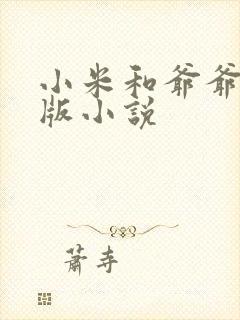 小米和爷爷
版小说
萧寺